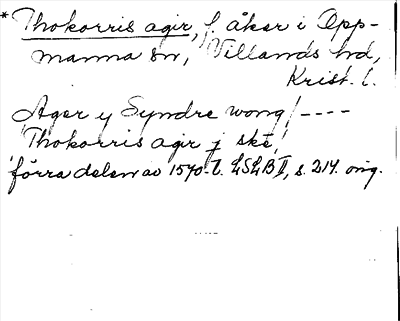 * Thokorris agir, f. åker i Opp-
manna sn, Villands hd,
Krist. l.
Ager y Syndre wong / ----
Thokorris agir j ske,
förra delen av 1570-t. LSLB II, s. 214. orig.